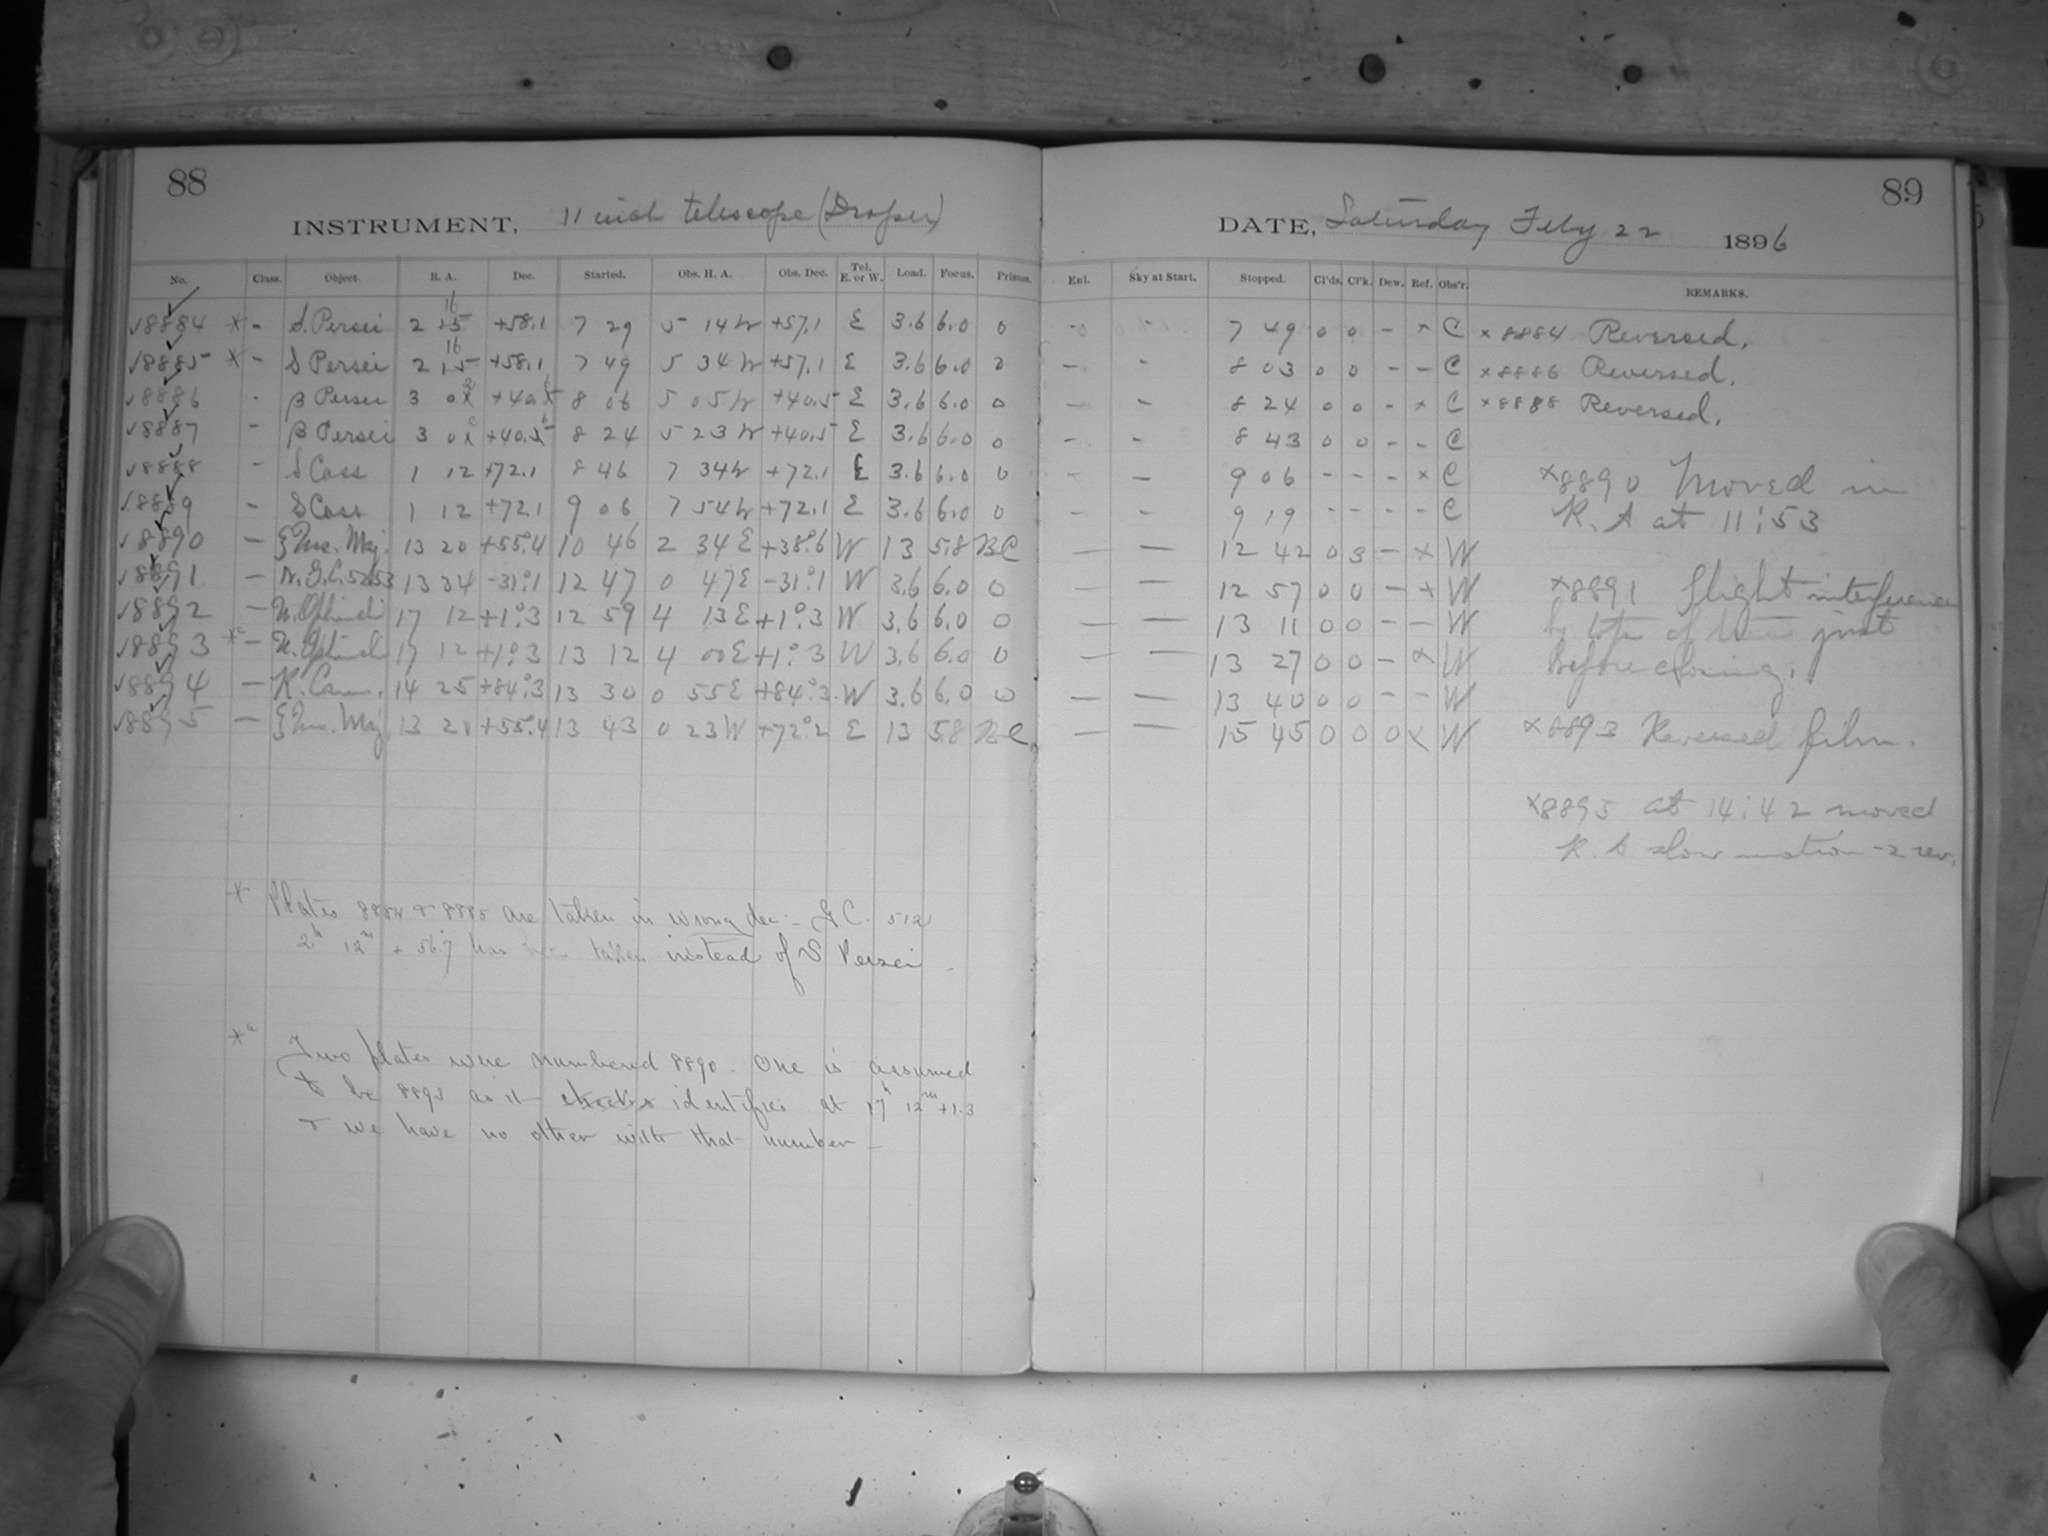 88
INSTRUMENT, 11 inch telescope (Draper)
No. Class. Object. R. A. Dec. Started. Obs. H. A. Obs. Dec. Tel. E. or W. Load. Focus. Prisms.
✓8884 * - S. Persei 2 15 16 +58.1 7 29 5 14 W +57.1 E 3.6 6.0 0
✓8885 * - S Persei 2 15 16 +58.1 7 49 5 34 W +57.1 E 3.6 6.0 0
✓8886 - β Persei 3 02 +40.5 6 8 06 5 05 W +40.5 E 3.6 6.0 0
✓8887 - β Persei 3 02 +40.5 6 8 24 5 23 W +40.5 E 3.6 6.0 0
✓8888 - S Cass 1 12 +72.1 8 46 7 34 W +72.1 E 3.6 6.0 0
✓8889 - S Cass 1 12 +72.1 9 06 7 54 W +72.1 E 3.6 6.0 0
✓8890 - ξ Urs. Maj. 13 20 +55°.4 10 46 2 34 E +38°.6 W 13 58 BC
✓8891 - N.G.C. 5253 13 34 -31°.1 12 47 0 47 E -31°.1 W 3.6 6.0 0
✓8892 - U. Ophiuchi 17 12 +1°.3 12 59 4 13 E +1°.3 W 3.6 6.0 0
✓8893 *a - U. Ophiuchi 17 12 +1°.3 13 12 4 00 E +1°.3 W 3.6 6.0 0
✓8894 - R. Cam. 14 25 +84°.3 13 30 0 55 E +84°.3 W 3.6 6.0 0
✓8895 - ξ Urs. Maj. 13 20 +55°.4 13 43 0 23 W +72°.2 E 13 58 BC
* Plates 8884 & 8885 are taken in wrong dec - G C. 512
2h 12m + 56.7 has been taken instead of S Persei -
*a Two plates were numbered 8890 - One is assumed
to be 8893 as it checks identifies at 17h 12m +1.3
& we have no other with that number -
89
DATE, Saturday Feby 22 1896
Enl. Sky at Start. Stopped. Cl'ds. Cl'k. Dew. Ref. Obs'r. REMARKS.
- - 7 49 0 0 - × C ×8884 Reversed.
- - 8 03 0 0 - - C ×8886 Reversed.
- - 8 24 0 0 - × C ×8888 Reversed.
- - 8 43 0 0 - - C
- - 9 06 - - - × C ×8890 Moved in
- - 9 19 - - - - C R. A at 11:53
- - 12 42 0 3 - × W
- - 12 57 0 0 - × W ×8891 Slight interference
- - 13 11 0 0 - - W by top of tree just
- - 13 27 0 0 - × W before closing.
- - 13 40 0 0 - - W
- - 15 45 0 0 0 × W ×8893 Reversed film.
×8895 at 14:42 moved
R. A slow motion -2 rev.